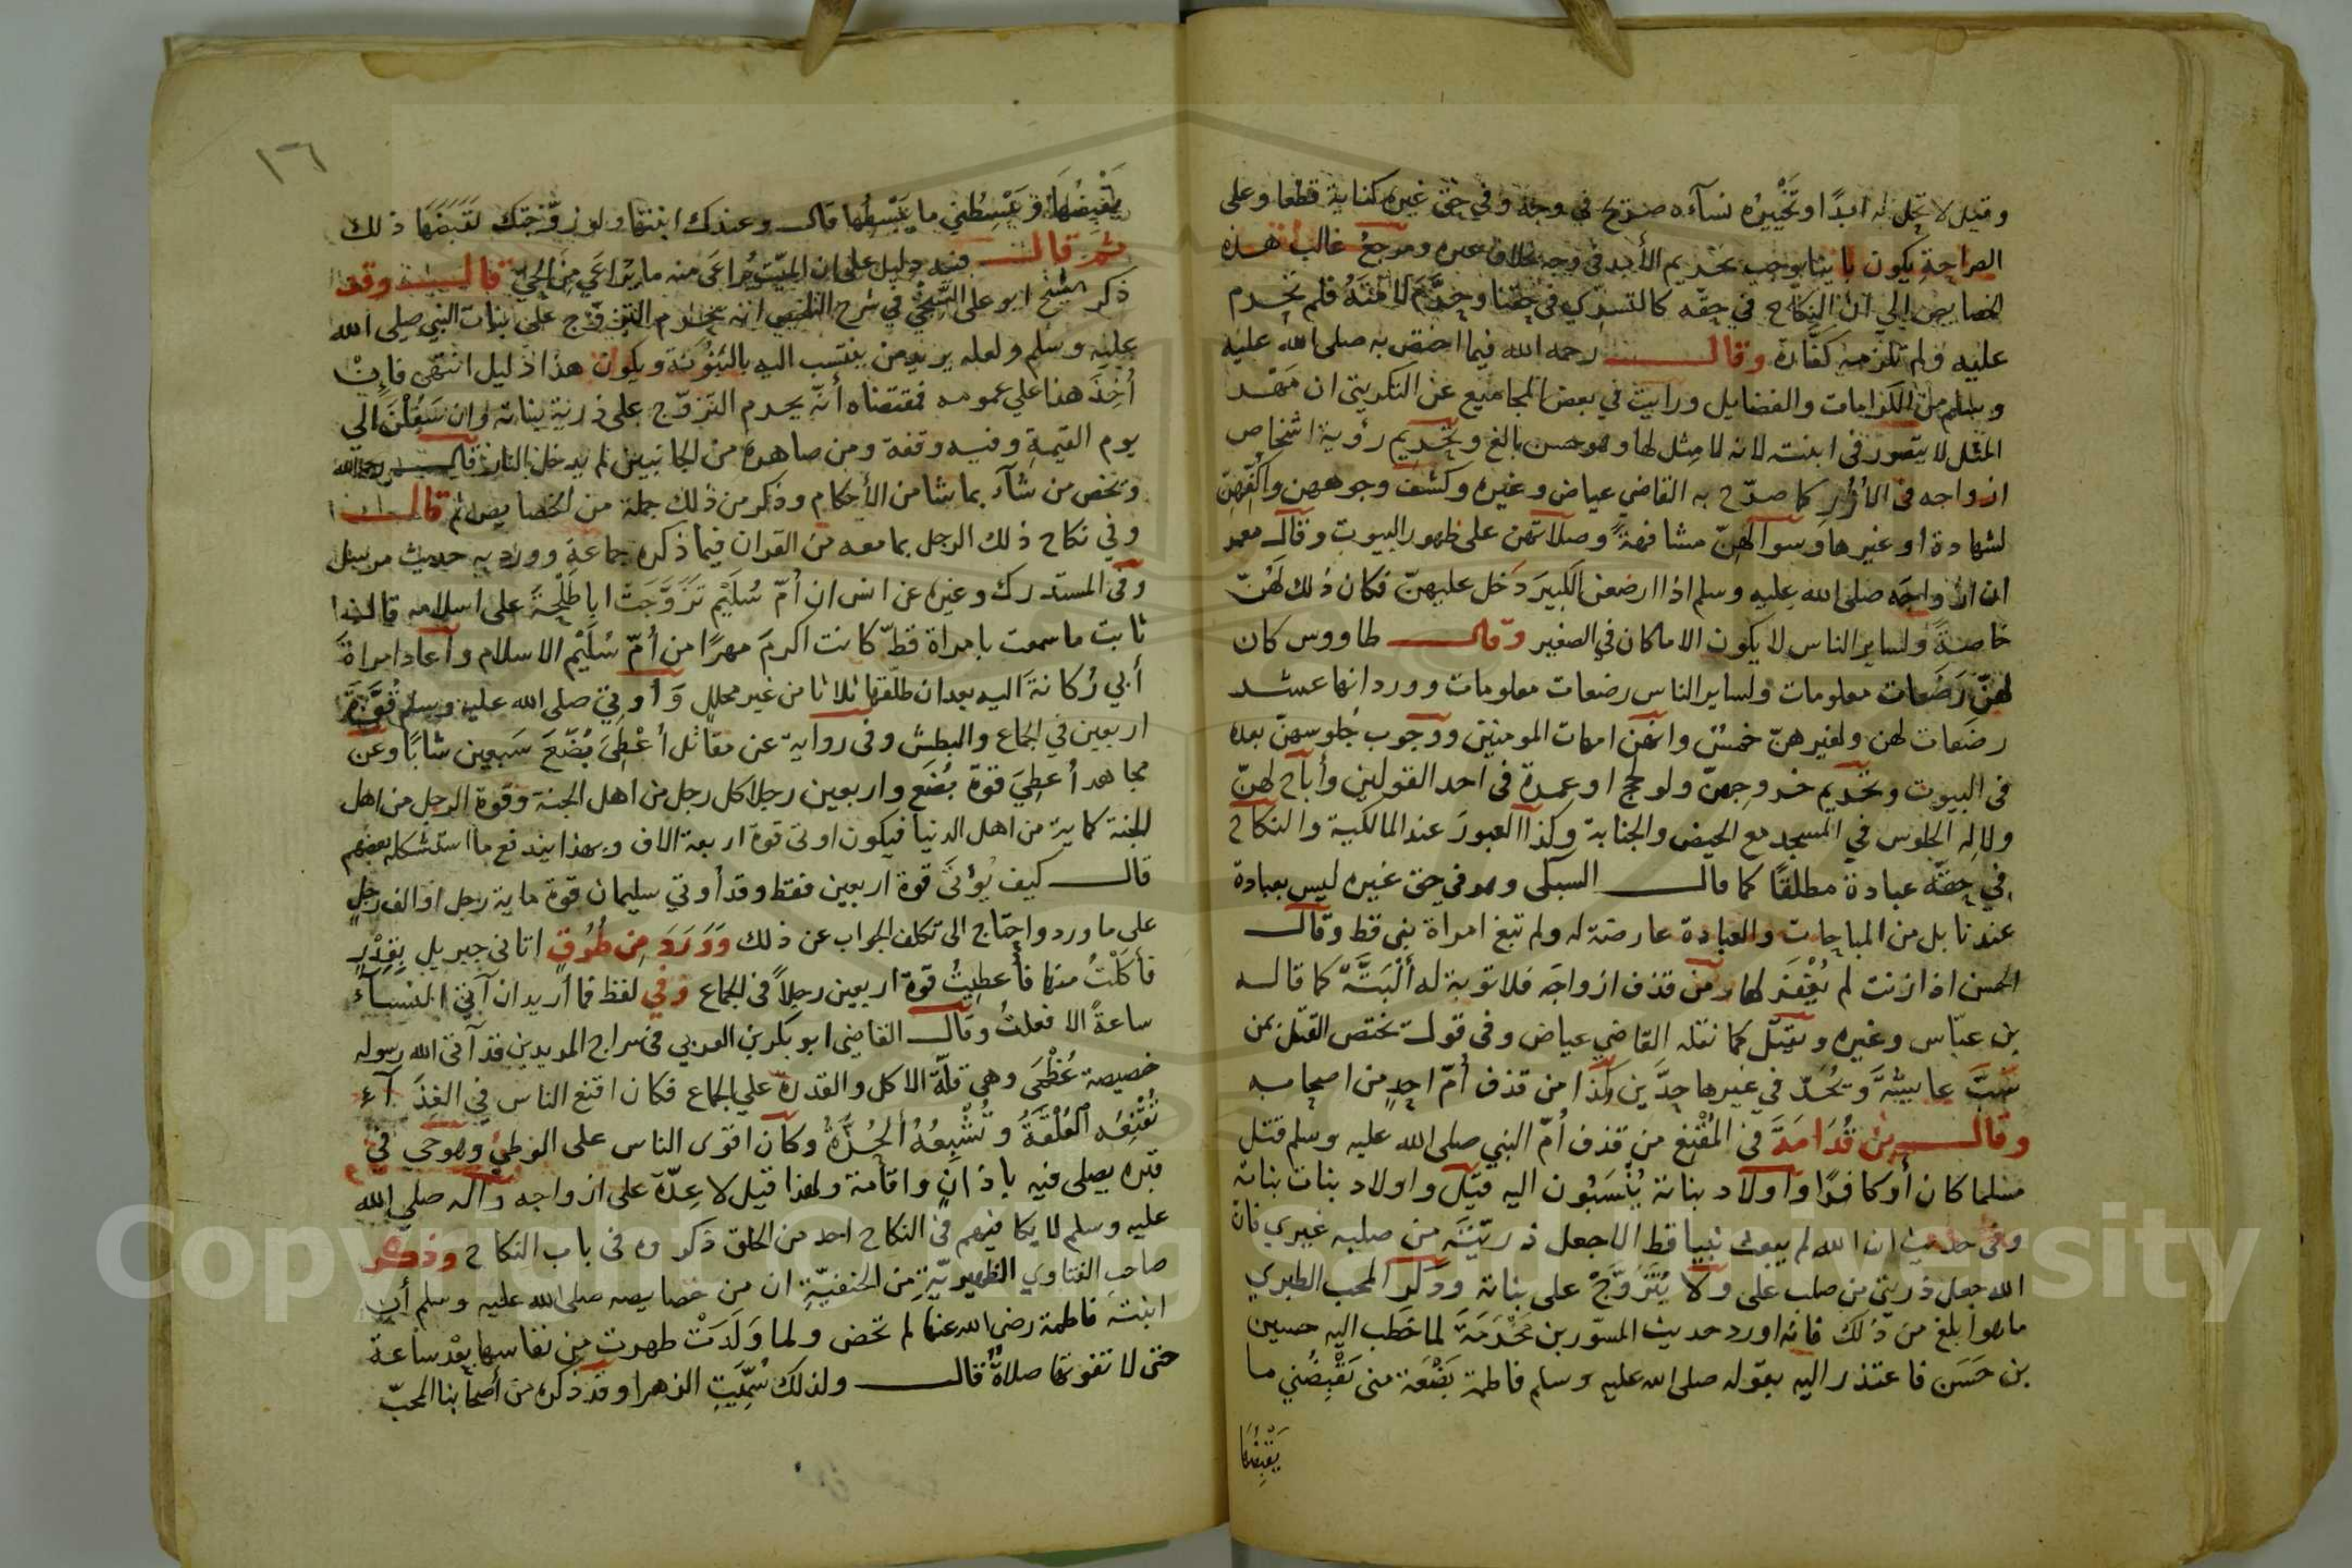 وقيل لا تحل له ابدًا وتَخْيِيرُه نسآءه صريح في وجه وفي حق غيره كناية قطعا وعلى
الصراحة يكون بائنا يوجب تحريم الأبد في وجه بخلاف غيره ومرجعُ غالب هذه
الخصايص الى ان النكاح في حقه كالتسري في حقنا وحرَّم لأمته فلم تحرم
عليه ولم تلزمه كفّارة وقال رحمه الله فيما اختص به صلى الله عليه
وسلم من الكرامات والفضايل ورايت في بعض المجاميع عن التكريتي ان مَهْر
المثل لا يتصور في ابنته لانه لا مِثل لها وهو حسن بالغ وتحريم رؤية اشخاص
ازواجه في الأزُرِ كما صرّح به القاضي عياض وغيره وكشف وجوههن واكفهن
لشهادة او غيرها وسوالهنّ مشافهةً وصلاتهن على ظهور البيوت وقال معمر
ان ازواجَه صلى الله عليه وسلم اذا ارضعن الكبيرَ دَخل عليهنّ فكان ذلك لهُنّ
خاصةً ولساير الناس لا يكون الا ما كان في الصغير وقال طاووس كان
لهنّ رَضَعات معلومات ولساير الناس رضعات معلومات وورد انها عشر
رضَعات لهن ولغيرهنّ خمسٌ وانهن امهات المومنين ووجوب جلوسهنّ بعده
في البيوت وتحريم خروجهنّ ولو لحج او عمرة في احد القولين وأباح لهنّ
ولالِه الجلوس في المسجد مع الحيض والجنابة وكذا العبورَ عند المالكية والنكاح
في حقّه عبادة مطلقًا كما قال السبكى وهو في حق غيره ليس بعبادة
عندنا بل من المباحات والعبادة عارضة له ولم تبغ امراة نبي قط وقال
الحسن اذا زنت لم يُغْفَر لها ومن قذف ازواجَه فلا توبة له أَلْبَتَّةَ كما قاله
بن عبّاس وغيره ويقتل كما نقله القاضي عياض وفي قول يختص القتل بمن
سَبَّ عايشةَ وتُحَدّ في غيرها حدَّين وكَذا من قذف أُمّ احدٍ من اصحابه
وقال بن قُدَامَةَ في المُقْنِع من قذف أُمّ النبي صلى الله عليه وسلم قتل
مسلما كان أوكافرًا واولاد بناته يُنْسَبُون اليه قيل واولاد بنات بناته
وفي حديث ان الله لم يبعث نبيا قط الا جعل ذريّتَه من صلبه غيري فان
الله جعل ذريتي من صلب على ولا يُتَزَوَّجُ على بناته وذكر المحب الطبري
ماهو ابلغ من ذلك فانه اورد حديث المسّور بن مَخْرَمَةَ لما خَطَب اليه حسين
بن حَسَن فاعتذر اليه بقوله صلى الله عليه وسلم فاطمة بَضْعَة منى يَقْبِضُني ما
يَقْبِضُهَا
١٦
يَقْبِضُهَا وَيَبْسِطُني ما يَبْسِطُها قال وعندك ابنتها ولو زوّجتك لقَبَضَهَا ذلك
ثم قال فيه دليل على ان الميّت يُراعَى منه ما يُراعَي مِن الحيّ قال وقد
ذكر الشيخ ابو على السِّنجي في شرح التلخيص انه يحرم التزوّج على بنات النبي صلى الله
عليه وسلم ولعله يريد من ينتسب اليه بالبُنُوّة ويكون هذا دليل انتهى فإِنْ
أُخِذَ هذا علي عمومه فمقتضاه أنّه يحرم التزوّج على ذرية بناته وان سَفُلْنَ الي
يوم القيمةِ وفيه وقفة ومن صاهره من الجانبين لم يدخل النار قال رحمه الله
وتخص من شآء بما شا من الأحكام وذكر من ذلك جملة من الخصايص ثم قال
وفي نكاح ذلك الرجل بما معه من القران فيما ذكره جماعة وورد به حديث مرسل
وفي المستدرك وغيره عن انس ان أُمّ سُلَيْم تَزَوَّجَتْ ابا طَلْحَةَ على اسلامه قال
ثابت ما سمعت بامراة قطّ كانت اكرمَ مهرًا من أُمّ سُلَيْم الاسلام وأعاد امراةَ
أبي رُكانةَ اليه بعد ان طلّقها ثلاثا من غير محلل وَأوتى صلى الله عليه وسلم قُوَّةَ
اربعين في الجماع والبطش وفي رواية عن مقاتل أعْطِىَ بُضْعَ سَبعِين شابًا وعن
مجاهد أُعطِيَ قوة بُضعِ واربعين رجلا كل رجل من اهل الجنة وقوة الرجل من اهل
الجنة كماية من اهل الدنيا فيكون اوتى قوة اربعة الاف وبهذا يندفع ما استشكله بعضهم
قال كيف يُؤتَى قوة اربعين فقط وقد أوتي سليمان قوة ماية رجل او الف رجلٍ
على ما ورد واحتاج الى تكلف الجواب عن ذلك وَوَرَدَ مِن طُرُقٍ اتانى جبريل بِقِدْرٍ
فأكَلْتُ منها فأُعطِيتُ قوّة اربعين رجلاً في الجماع وفي لفظ فما أريد ان آتى النسآءَ
ساعةً الا فعلتُ وقال القاضى ابو بكر بن العربي في سراج المريدين قد آتى الله رسوله
خصيصة عُظْمَى وهي قلّة الاكل والقدرة علي الجماع فكان اقنع الناس في الغذَآءِ
تُقْنِعُه العُلْقَةُ وتُشْبِعُهُ الحُزَّةُ وكان اقوى الناس على الوطئِ وهو حى في
قبره يصلى فيه باذانٍ واقامة ولهذا قيل لا عِدّة على ازواجه وآله صلي الله
عليه وسلم لا يكافيهم في النكاح احد من الخلق ذكروه في باب النكاح وذكر
صاحب الفتاوي الظهيريّةِ من الحنفيّةِ ان من خصايصه صلى الله عليه وسلم أن
ابنتَه فاطمة رضى الله عنها لم تحض ولما وَلَدَتْ طهرت من نفاسها بعْد ساعة
حتى لا تفوتها صلاةٌ قال ولذلك سُمِّيَتِ الزهرا وقد ذكره من أصحابنا المحبّ
Copyright © King Saud University